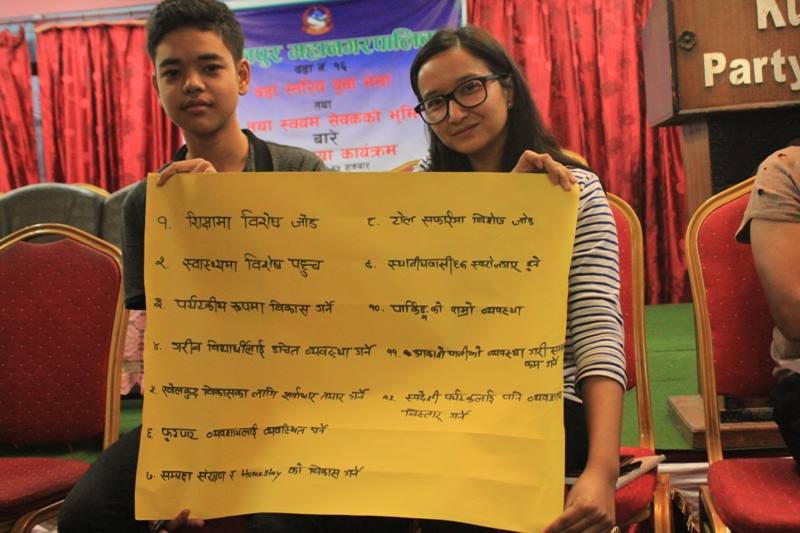 नपुर महानगरपालिका
वडा नं १६
वडा स्तरिय युवा भेला
तथा
तथा स्वयम सेवकको भूमि
बारे
कार्यक्रम
Ku
Party
१. शिक्षामा विशेष जोड
२. स्वास्थ्यमा विशेष पहुच
३. पर्यटकीय रूपमा विकास गर्ने
४. गरीव विद्यार्थीलाई उचित व्यवस्था गर्ने
५. खेलकुद विकासका लागि पूर्वाधार तयार गर्ने
६. फूटपाट व्यवसायलाई व्यवस्थित गर्ने
७. सम्पदा संरक्षण र Homestay को विकास गर्ने
८. टोल सफाईमा विशेष जोड
९. स्थानीयवासी स्वरोजगार हुने
१०. पार्किङ्ग को राम्रो व्यवस्था
११. को व्यवस्था गरी
कम गर्ने
१२. स्वदेशी पर्यटकलाई पनि व्यवसाय
विस्तार गर्ने